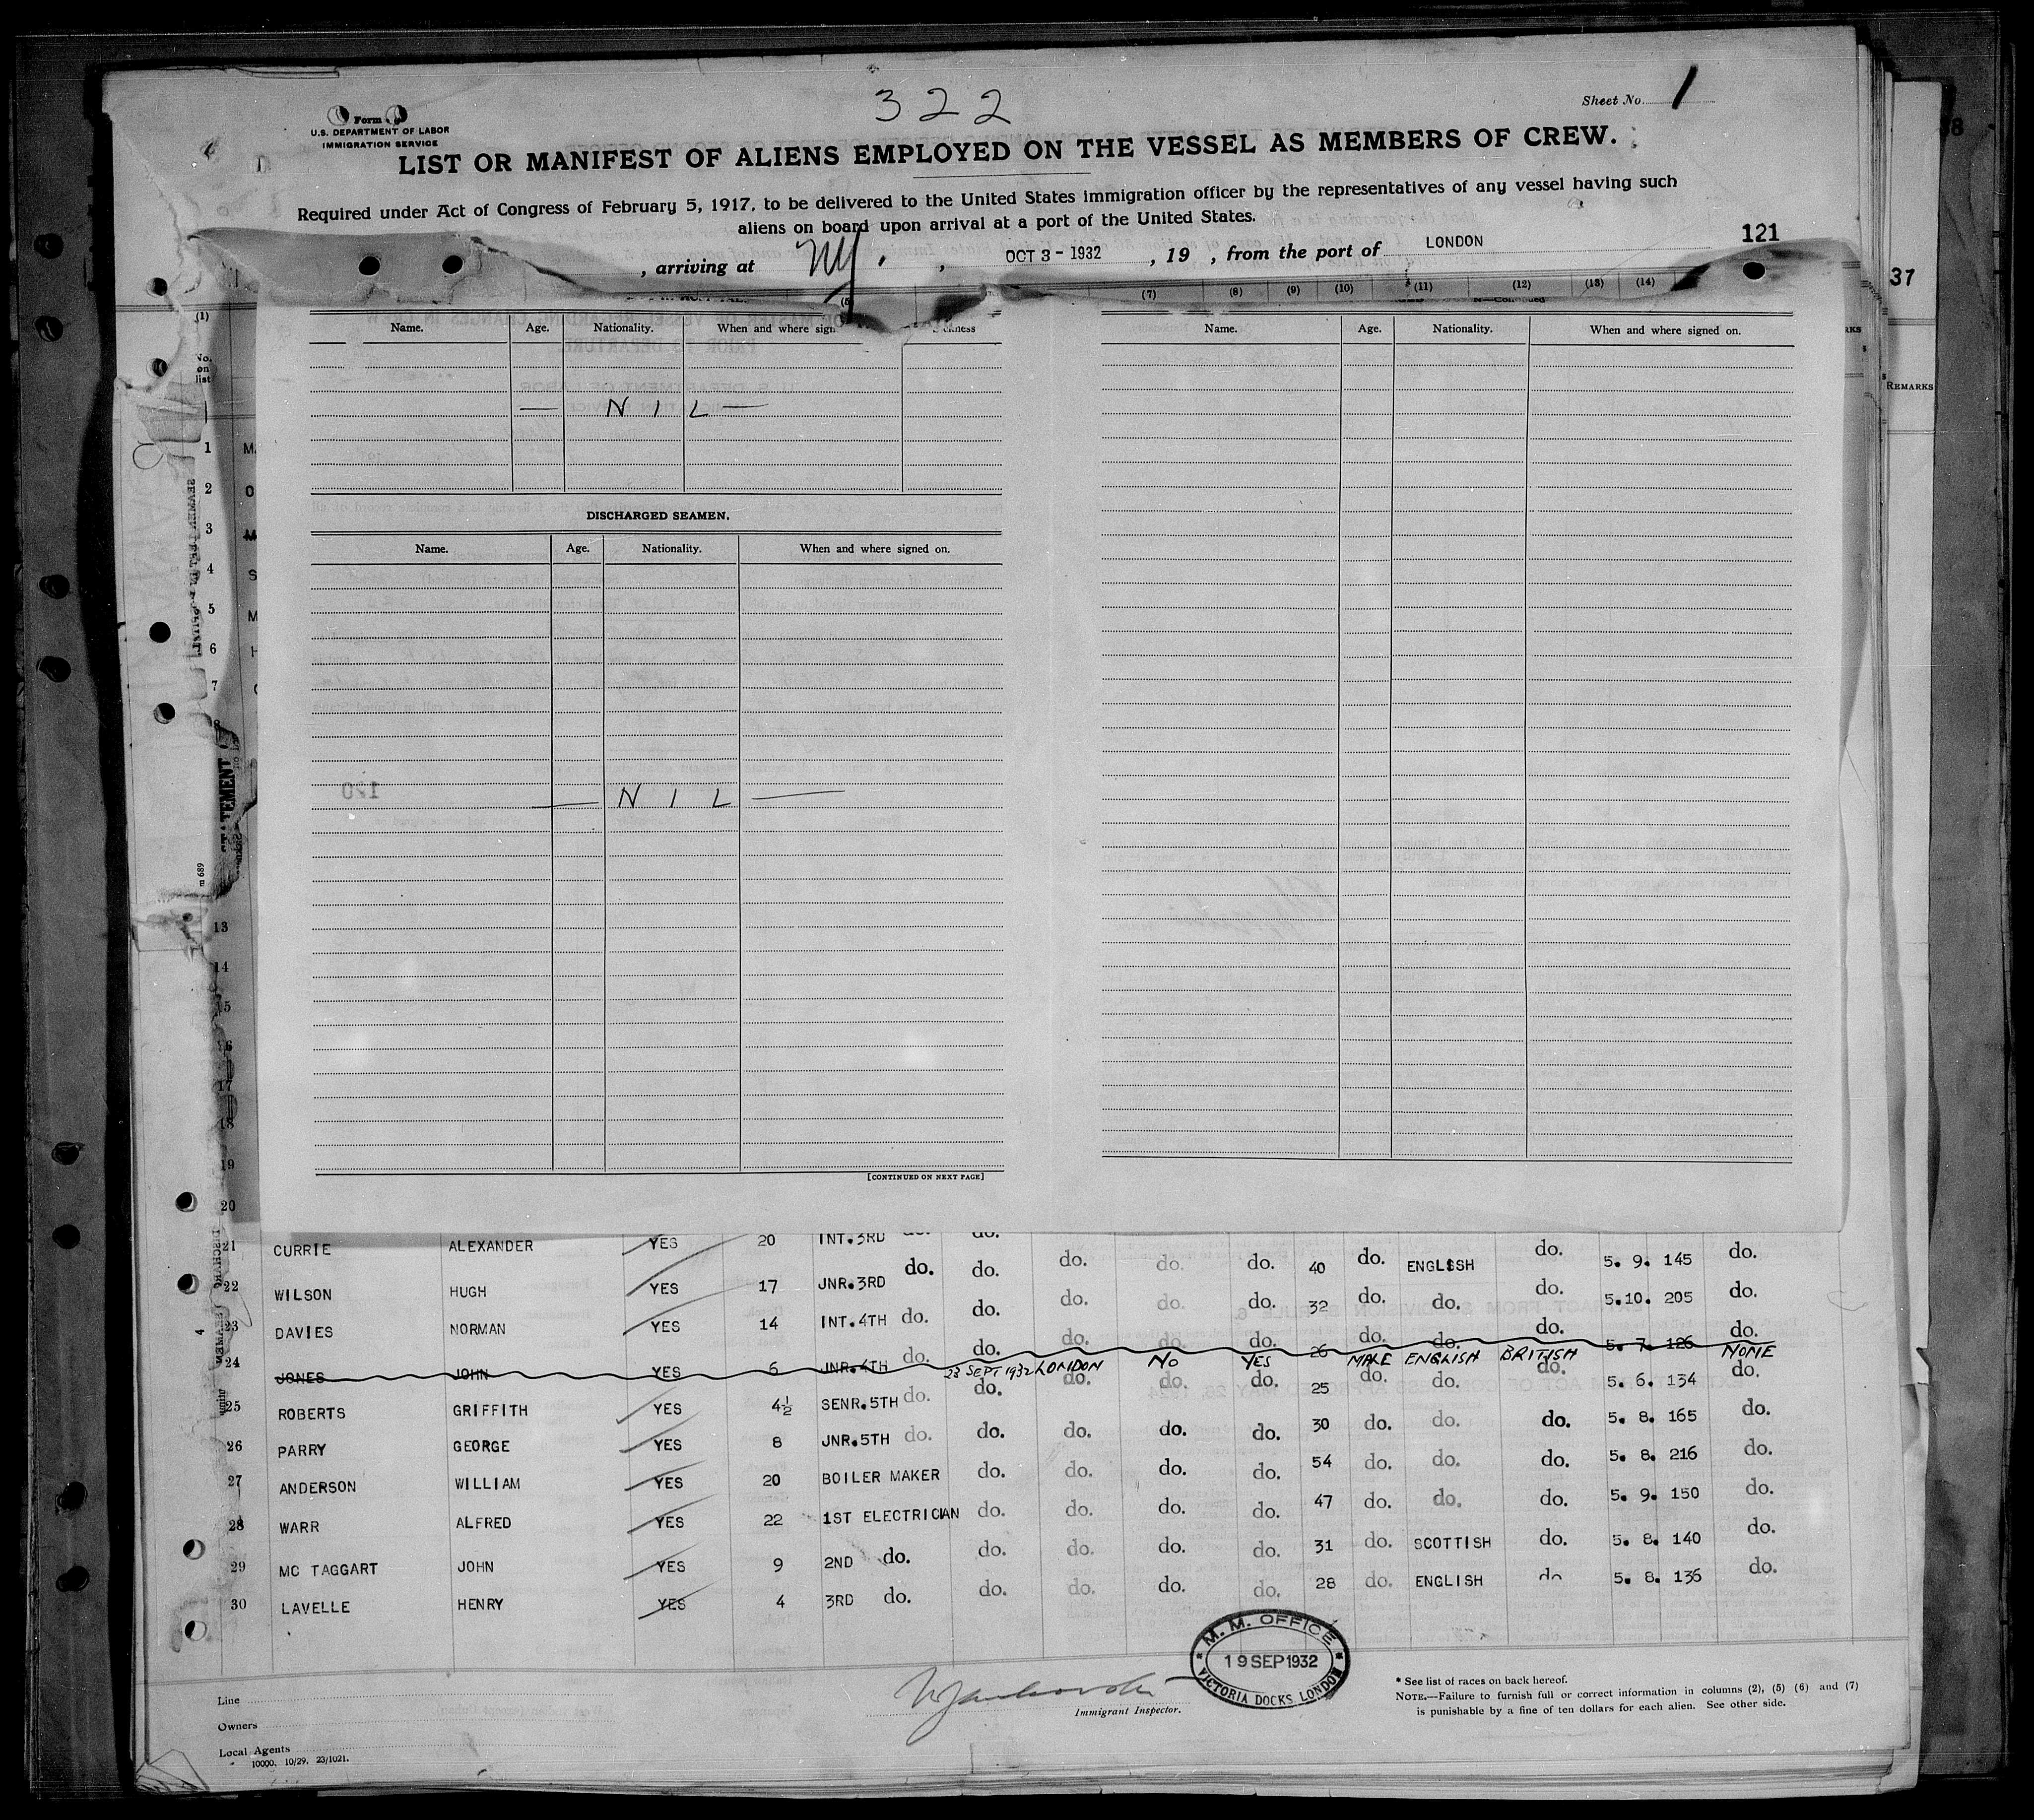 322
Sheet No. 1
Form
U.S. DEPARTMENT OF LABOR
IMMIGRATION SERVICE
LIST OR MANIFEST OF ALIENS EMPLOYED ON THE VESSEL AS MEMBERS OF CREW.
Required under Act of Congress of February 5, 1917, to be delivered to the United States immigration officer by the representatives of any vessel having such
aliens on board upon arrival at a port of the United States.
121
, arriving at NY. , OCT 3 - 1932 , 19 , from the port of LONDON
37
(1) (5) (7) (8) (9) (10) (11) (12) (13) (14)
Name. Age. Nationality. When and where sign
Name. Age. Nationality. When and where signed on.
No. on list
REMARKS
— N I L —
DISCHARGED SEAMEN.
Name. Age. Nationality. When and where signed on.
1
2
3
4
5
6
7
— N I L —
STATEMENT
m 689
13
14
16
17
18
19
[CONTINUED ON NEXT PAGE]
20
21 CURRIE ALEXANDER YES 20 INT.3RD do. do. do. do. do. 40 do. ENGLISH do. 5. 9. 145 do.
22 WILSON HUGH YES 17 JNR.3RD do. do. do. do. do. 32 do. do. do. 5.10. 205 do.
23 DAVIES NORMAN YES 14 INT.4TH do. do. do. do. do. 26 do. do. do. 5. 7. 126 do.
24 JONES JOHN YES 6 JNR.4TH do. do. do. do. do. 25 do. do. do. 5. 6. 134 do.
23 SEPT 1932 LONDON NO YES MALE ENGLISH BRITISH NONE
25 ROBERTS GRIFFITH YES 4½ SENR.5TH do. do. do. do. do. 30 do. do. do. 5. 8. 165 do.
26 PARRY GEORGE YES 8 JNR.5TH do. do. do. do. do. 54 do. do. do. 5. 8. 216 do.
27 ANDERSON WILLIAM YES 20 BOILER MAKER do. do. do. do. 47 do. do. do. 5. 9. 150 do.
28 WARR ALFRED YES 22 1ST ELECTRICIAN do. do. do. do. 31 do. SCOTTISH do. 5. 8. 140 do.
29 MC TAGGART JOHN YES 9 2ND do. do. do. do. do. 28 do. ENGLISH do. 5. 8. 136 do.
30 LAVELLE HENRY YES 4 3RD do. do. do. do. do.
M. M. OFFICE
19 SEP 1932
VICTORIA DOCKS LONDON
Line
Owners
Local Agents
10000. 10/29. 23/1021.
Immigrant Inspector.
* See list of races on back hereof.
NOTE.—Failure to furnish full or correct information in columns (2), (5) (6) and (7)
is punishable by a fine of ten dollars for each alien. See other side.